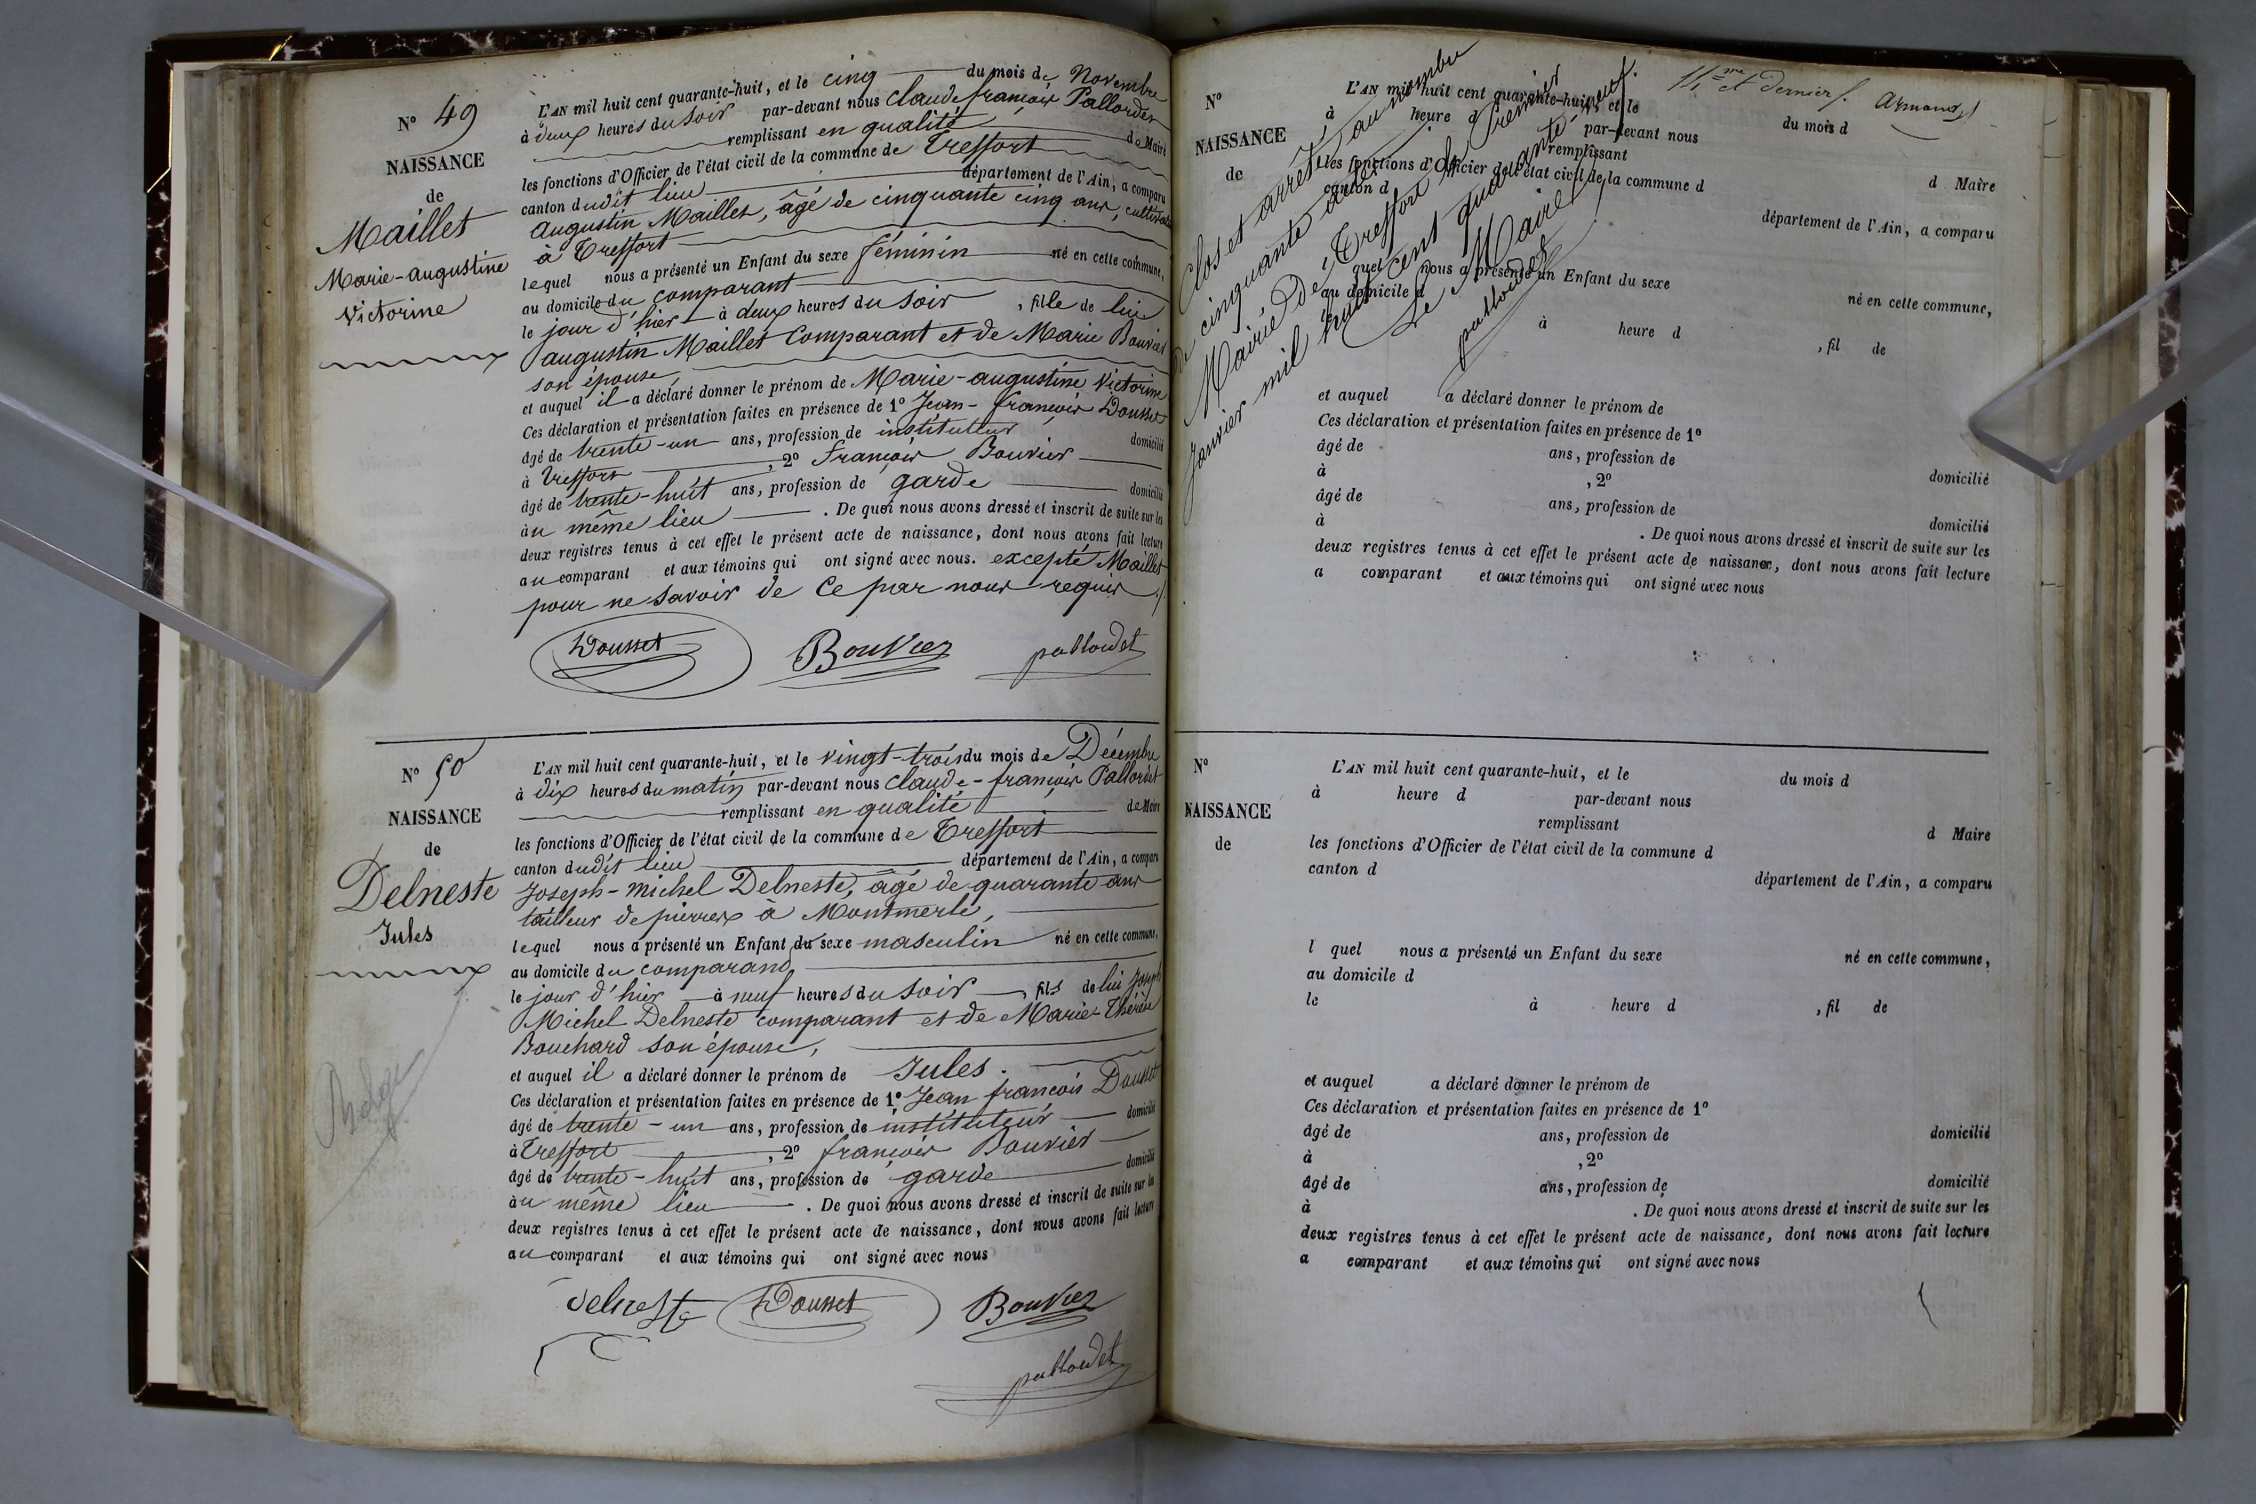 N° 49
NAISSANCE
de
Maillet
Marie-augustine
Victorine
L'AN mil huit cent quarante-huit, et le cinq du mois de Novembre
à deux heures du soir par-devant nous Claude françois Pallordet
remplissant en qualité de Maire
les fonctions d'Officier de l'état civil de la commune de Treffort
canton dudit lieu département de l'Ain, a comparu
augustin Maillet, âgé de cinquante cinq ans, cultivateur
à Treffort
lequel nous a présenté un Enfant du sexe féminin né en cette commune,
au domicile du comparant
le jour d'hier à deux heures du soir, fille de lui
augustin Maillet Comparant et de Marie Bouvier
son épouse,
et auquel il a déclaré donner le prénom de Marie-augustine Victorine
Ces déclaration et présentation faites en présence de 1° Jean-françois Dousset
âgé de trente-un ans, profession de instituteur domicilié
à Treffort, 2° françois Bouvier
âgé de trente-huit ans, profession de garde domicilié
au même lieu. De quoi nous avons dressé et inscrit de suite sur les
deux registres tenus à cet effet le présent acte de naissance, dont nous avons fait lecture
au comparant et aux témoins qui ont signé avec nous. excepté Maillet
pour ne savoir de ce par nous requis
Dousset Bouvier pallordet
N° 50
NAISSANCE
de
Delneste
Jules
L'AN mil huit cent quarante-huit, et le vingt-trois du mois de Décembre
à dix heures du matin par-devant nous Claude-françois Pallordet
remplissant en qualité de Maire
les fonctions d'Officier de l'état civil de la commune de Treffort
canton dudit lieu département de l'Ain, a comparu
Joseph-michel Delneste, âgé de quarante ans
tailleur de pierres à Montmerle,
lequel nous a présenté un Enfant du sexe masculin né en cette commune,
au domicile du comparant
le jour d'hier à neuf heures du soir, fils de lui Joseph
Michel Delneste comparant et de Marie-Thérèse
Bouchard son épouse,
et auquel il a déclaré donner le prénom de Jules.
Ces déclaration et présentation faites en présence de 1° Jean françois Dousset
âgé de trente-un ans, profession de instituteur domicilié
à Treffort, 2° françois Bouvier
âgé de trente-huit ans, profession de garde domicilié
au même lieu. De quoi nous avons dressé et inscrit de suite sur les
deux registres tenus à cet effet le présent acte de naissance, dont nous avons fait lecture
au comparant et aux témoins qui ont signé avec nous
delneste Dousset Bouvier
pallordet
11me et dernier. Armand
Clos et arrêté au nombre
de cinquante actes
Mairie de Treffort le Premier
Janvier mil huit cent quarante-neuf.
Le Maire
pallordet
N°
NAISSANCE
de
L'AN mil huit cent quarante-huit, et le du mois d
à heure d par-devant nous
remplissant d Maire
les fonctions d'Officier de l'état civil de la commune d
canton d département de l'Ain, a comparu
quel nous a présenté un Enfant du sexe né en cette commune,
au domicile d
le à heure d , fil de
et auquel a déclaré donner le prénom de
Ces déclaration et présentation faites en présence de 1°
âgé de ans, profession de domicilié
à , 2°
âgé de ans, profession de domicilié
à . De quoi nous avons dressé et inscrit de suite sur les
deux registres tenus à cet effet le présent acte de naissance, dont nous avons fait lecture
a comparant et aux témoins qui ont signé avec nous
N°
NAISSANCE
de
L'AN mil huit cent quarante-huit, et le du mois d
à heure d par-devant nous
remplissant d Maire
les fonctions d'Officier de l'état civil de la commune d
canton d département de l'Ain, a comparu
l quel nous a présenté un Enfant du sexe né en cette commune,
au domicile d
le à heure d , fil de
et auquel a déclaré donner le prénom de
Ces déclaration et présentation faites en présence de 1°
âgé de ans, profession de domicilié
à , 2°
âgé de ans, profession de domicilié
à . De quoi nous avons dressé et inscrit de suite sur les
deux registres tenus à cet effet le présent acte de naissance, dont nous avons fait lecture
a comparant et aux témoins qui ont signé avec nous